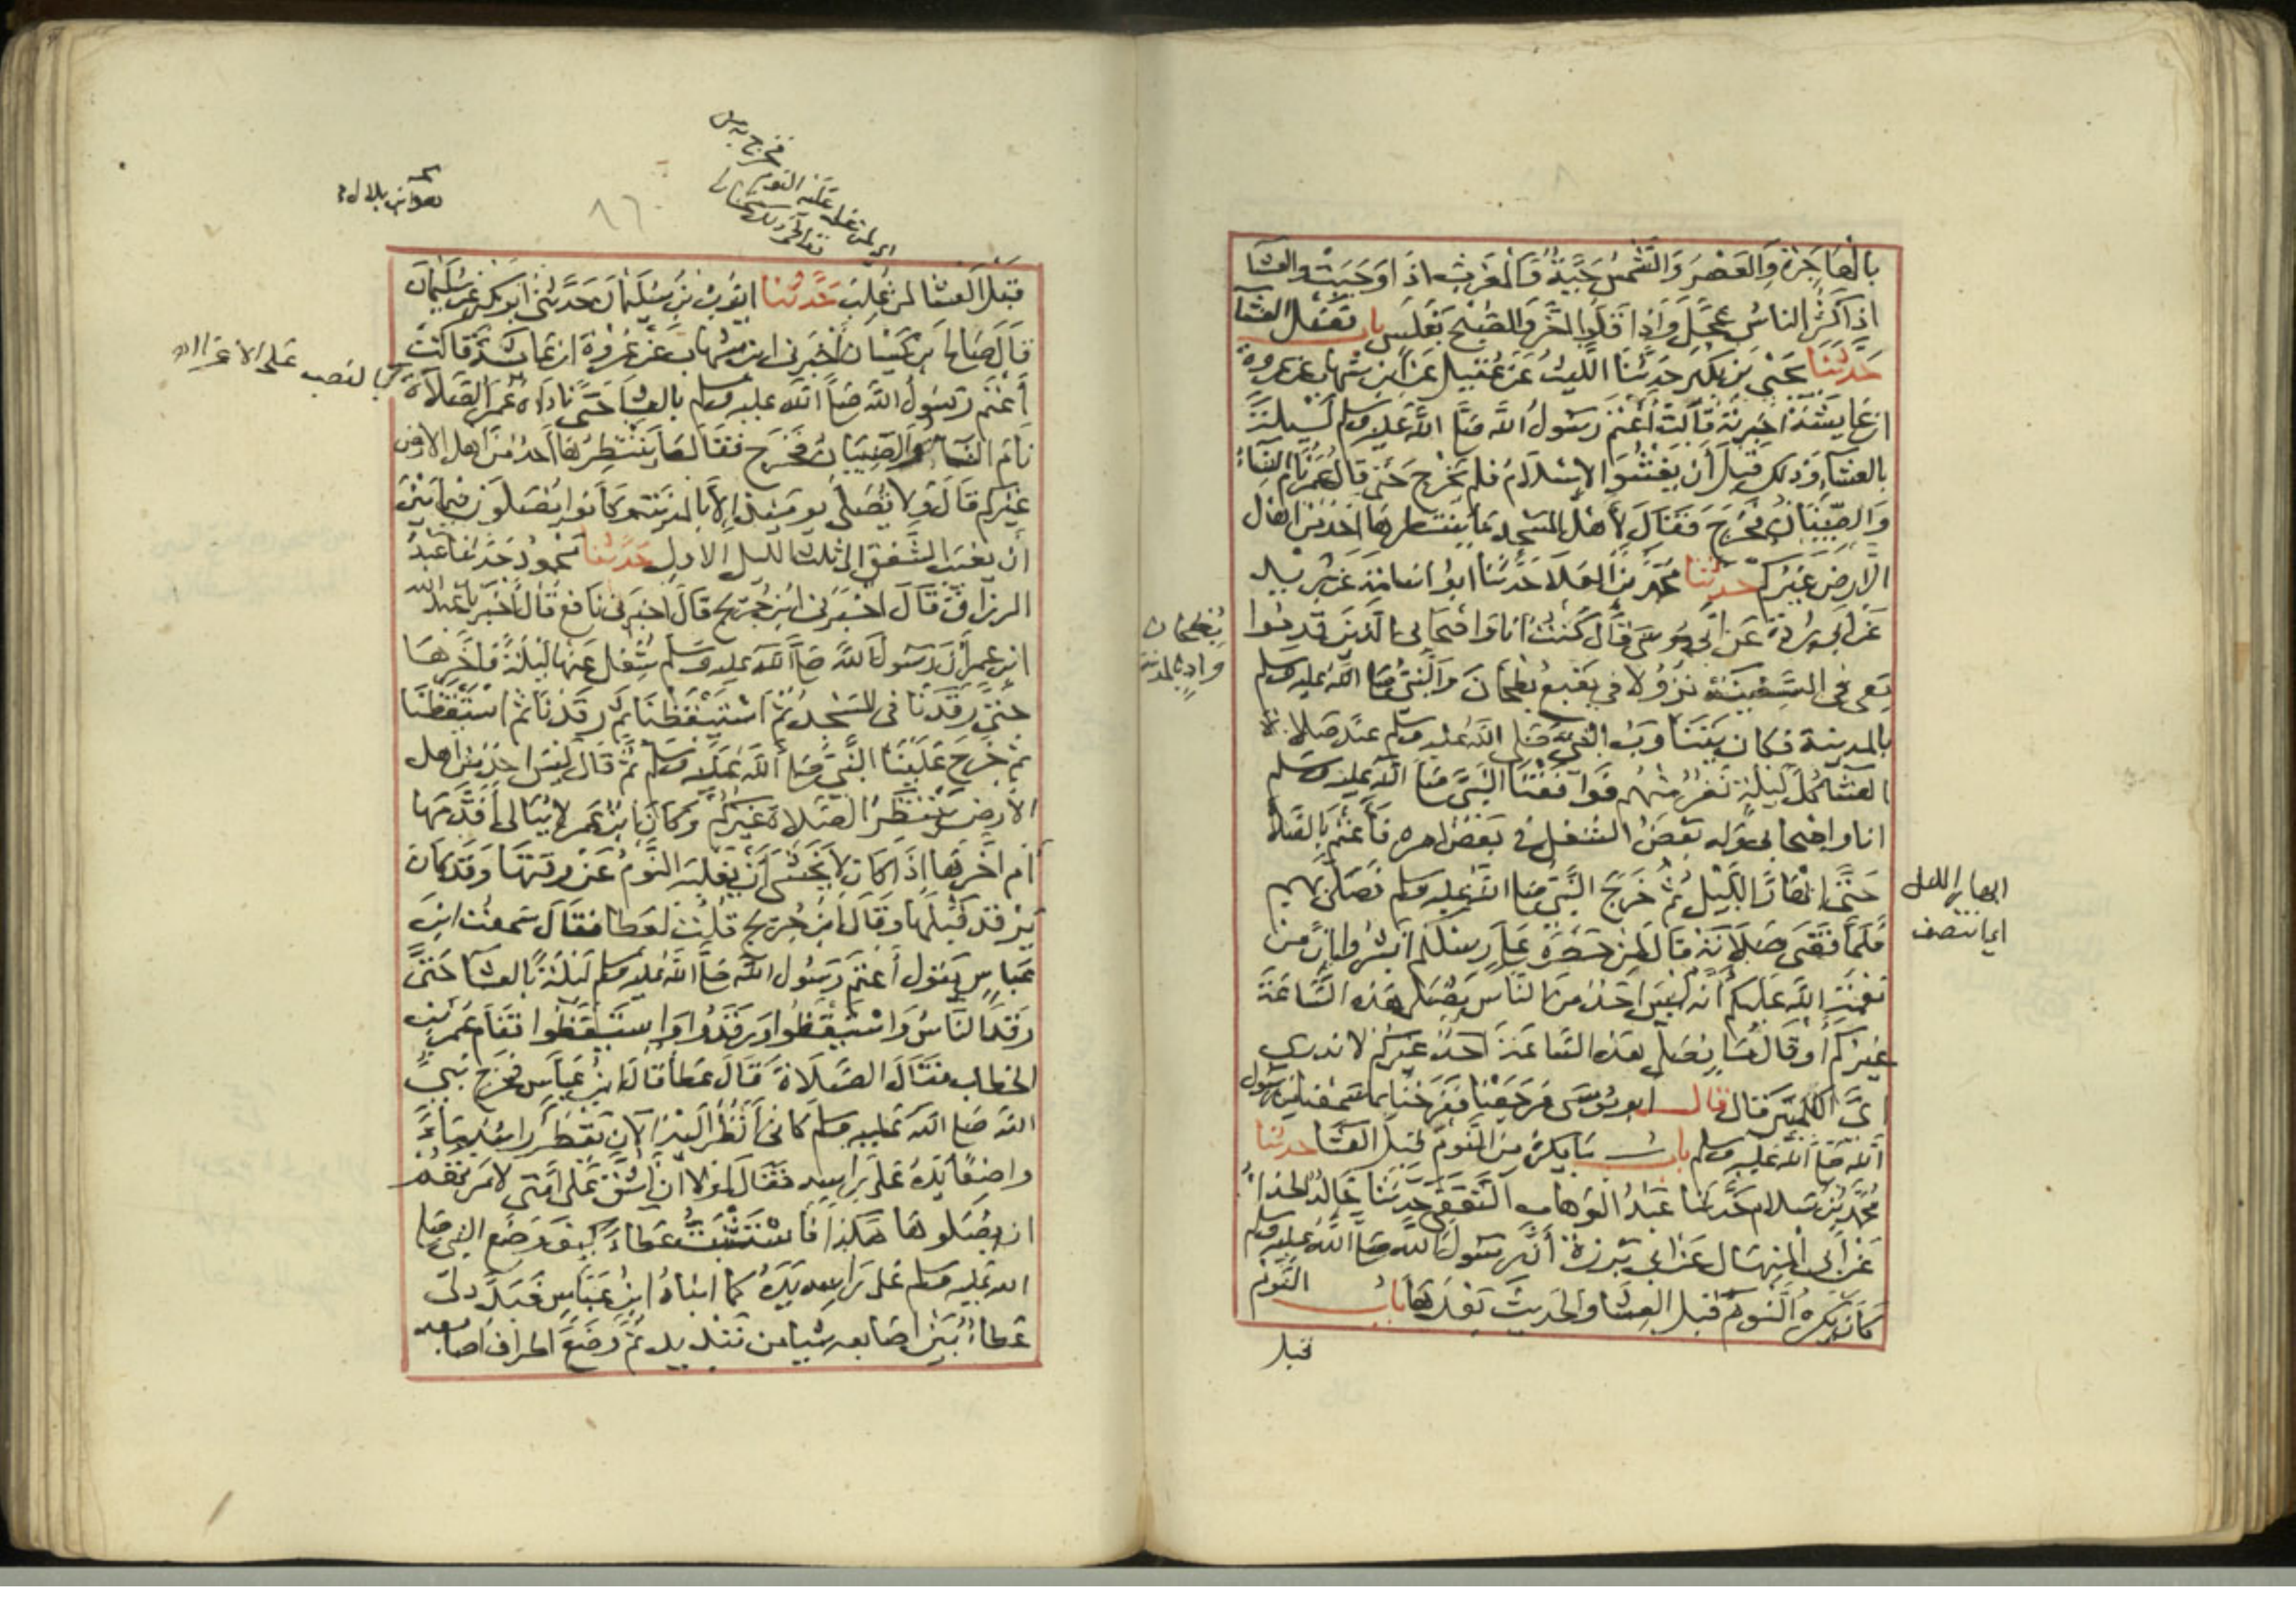 بالهاجرة والعصر والشمس حية والمغرب اذا وجبت والعشا
اذا كثر الناس عجل واذا قلوا اخر والصبح بغلس باب فضل العشا
حدثنا يحيى بن بكير حدثنا الليث عن عقيل عن ابن شهاب عن عروة
ان عايشة اخبرته قالت أعتم رسول الله صلى الله عليه وسلم ليلة
بالعشاء وذلك قبل أن يفشوا الإسلام فلم يخرج حتى قال عمر نام النساء
والصبيان فخرج فقال لأهل المسجد ما ينتظرها احد من اهل
الارض غيركم حدثنا محمد بن العلا حدثنا ابو اسامة عن بريد
عن ابي بردة عن ابي موسى قال كنت انا واصحابي الذين قدموا
معى في السفينة نزولا في بقيع بطحان والنبى صلى الله عليه وسلم
بالمدينة فكان يتناوب النبي صلى الله عليه وسلم عند صلاة
العشا كل ليلة نفر منهم فوافقنا النبي صلى الله عليه وسلم
انا واصحابي وله بعض الشغل في بعض امره فأعتم بالصلاة
حتى ابهار الليل ثم خرج النبي صلى الله عليه وسلم فصلى بهم
فلما قضى صلاته قال لمن حضره على رسلكم ابشروا ان من
نعمة الله عليكم أنه ليس احد من الناس يصلى هذه الساعة
غيركم أو قال ما صلى هذه الساعة احد غيركم لا ندرى
اىّ الكلمتين قال قال ابو موسى فرجعنا ففرحنا بما سمعنا من رسول
الله صلى الله عليه وسلم باب ما يكره من النوم قبل العشا حدثنا
محمد بن سلام حدثنا عبد الوهاب الثقفى حدثنا خالد الحذاء
عن أبي المنهال عن ابي برزة أن رسول الله صلى الله عليه وسلم
كان يكره النوم قبل العشا والحديث بعدها باب النوم
قبل
بطحان
واد بالمدينة
ابهار الليل
اى انتصف
قبل العشا لمن غلب حدثنا ايوب بن سليمان حدثنى ابو بكر عن سليمان
قال صالح بن كيسان أخبرني ابن شهاب عن عروة ان عايشة قالت
أعتم رسول الله صلى الله عليه وسلم بالعشا حتى ناداه عمر الصلاة
نام النساء والصبيان فخرج فقال ما ينتظرها احد من اهل الارض
غيركم قال ولا تصلى يوميذ إلا بالمدينة وكانوا يصلون فيما بين
أن يغيب الشفق الى ثلث الليل الاول حدثنا محمود حدثنا عبد
الرزاق قال اخبرنى ابن جريج قال اخبرنى نافع قال أخبرنا عبد الله
ابن عمر أن رسول الله صلى الله عليه وسلم شغل عنها ليلة فاخرها
حتى رقدنا فى المسجد ثم استيقظنا ثم رقدنا ثم استيقظنا
ثم خرج علينا النبي صلى الله عليه وسلم ثم قال ليس احد من اهل
الأرض ينتظر الصلاة غيركم وكان ابن عمر لا يبالى أقدمها
أم اخرها اذا كان لا يخشى أن يغلبه النوم عن وقتها وقد كان
يرقد قبلها وقال ابن جريج قلت لعطا فقال سمعت ابن
عباس يقول أعتم رسول الله صلى الله عليه وسلم ليلة بالعشا حتى
رقد الناس واستيقظوا ورقدوا واستيقظوا فقام عمر بن
الخطاب فقال الصلاة قال عطا قال ابن عباس فخرج نبي
الله صلى الله عليه وسلم كانى أنظر اليه الآن يقطر راسه ماء
واضعا يده على راسه فقال لولا ان اشق على امتى لامرتهم
ان يصلوها هكذا فاستثبت عطاء كيف وضع النبى صلى
الله عليه وسلم على راسه يده كما انباه ابن عباس فبدد لى
عطاء بين اصابعه شيا من تبديد ثم وضع اطراف اصابعه
هو ابن بلال
بالنصب على الاغراء